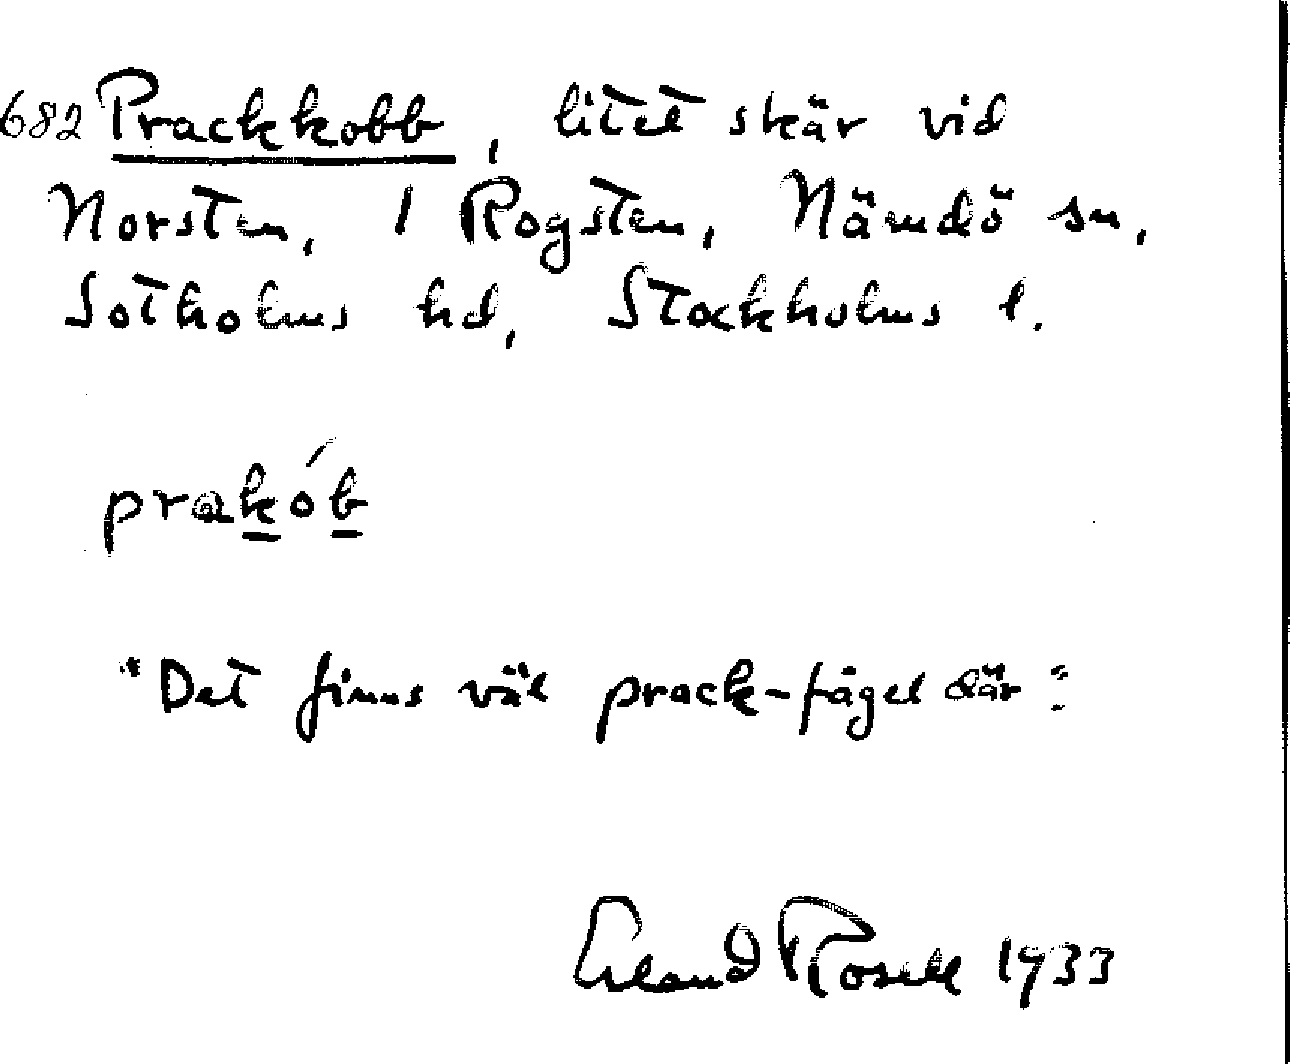 682 Prackkobb, litet skär vid
Norsten, 1 Rogsten, Nämdö sn,
Sotholms hd, Stockholms l.
prakób
"Det finns väl prack-fågel där."
Erland Rosell 1933